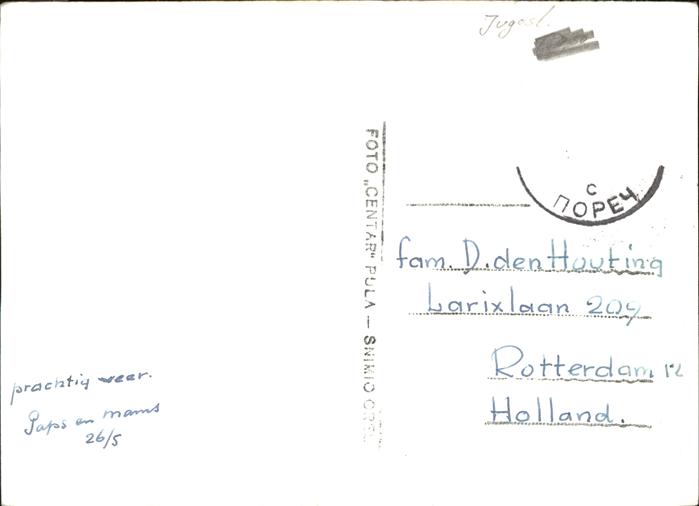 Jugosl.
С
ПОРЕЧ
FOTO „CENTAR“ PULA — SNIMIO
fam. D. den Houting
Larixlaan 209
Rotterdam 12
Holland.
prachtig weer.
Paps en mams
26/5